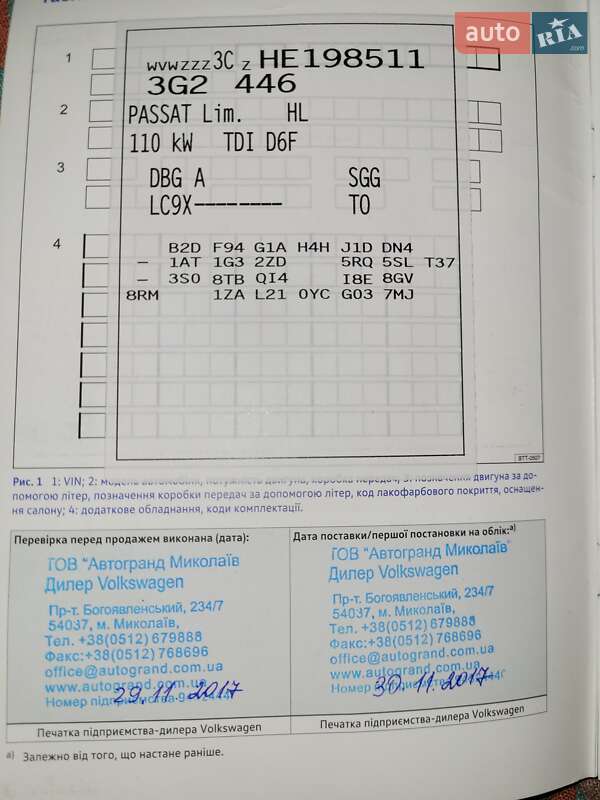 auto RIA .com
1
WVWZZZ3C Z HE198511
3G2 446
2
PASSAT Lim. HL
110 kW TDI D6F
3
DBG A SGG
LC9X-------- T0
4
B2D F94 G1A H4H J1D DN4
- 1AT 1G3 2ZD 5RQ 5SL T37
- 3S0 8TB QI4 I8E 8GV
8RM 1ZA L21 0YC G03 7MJ
BTT-0507
Рис. 1 1: VIN; 2: модель автомобіля, потужність двигуна, коробка передач; 3: позначення двигуна за до-
помогою літер, позначення коробки передач за допомогою літер, код лакофарбового покриття, оснащен-
ня салону; 4: додаткове обладнання, коди комплектації.
Перевірка перед продажем виконана (дата):
ТОВ "Автогранд Миколаїв
Дилер Volkswagen
Пр-т. Богоявленський, 234/7
54037, м. Миколаїв,
Тел. +38(0512) 679888
Факс:+38(0512) 768696
office@autogrand.com.ua
www.autogrand.com.ua
Номер підприємства
29.11.2017
Печатка підприємства-дилера Volkswagen
Дата поставки/першої постановки на облік:а)
ТОВ "Автогранд Миколаїв"
Дилер Volkswagen
Пр-т. Богоявленський, 234/7
54037, м. Миколаїв,
Тел. +38(0512) 679888
Факс:+38(0512) 768696
office@autogrand.com.ua
www.autogrand.com.ua
Номер підприємства
30.11.2017
Печатка підприємства-дилера Volkswagen
а) Залежно від того, що настане раніше.